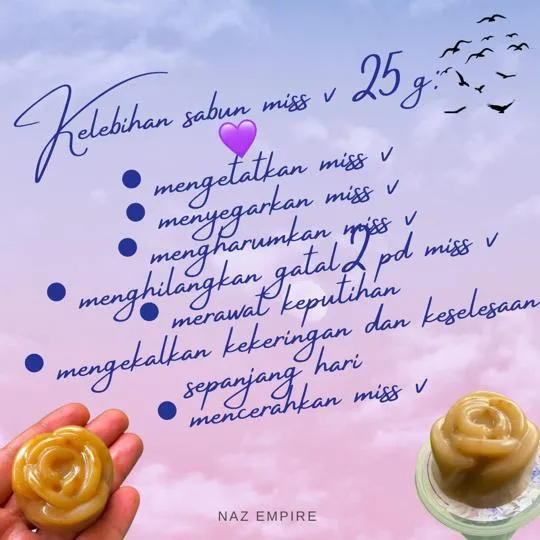 Kelebihan sabun miss v 25 g:
mengetatkan miss v
menyegarkan miss v
mengharumkan miss v
menghilangkan gatal2 pd miss v
merawat keputihan
mengekalkan kekeringan dan keselesaan
sepanjang hari
mencerahkan miss v
NAZ EMPIRE